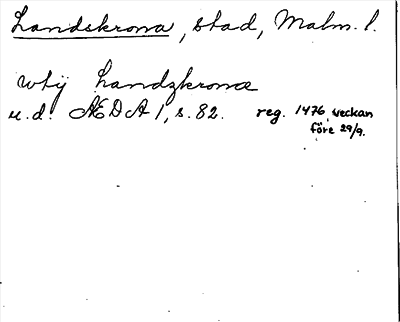 Landskrona, stad, Malm. l.
wtij Landzkrona
u.d. ÆDA 1, s. 82. reg. 1476 veckan
före 29/9.